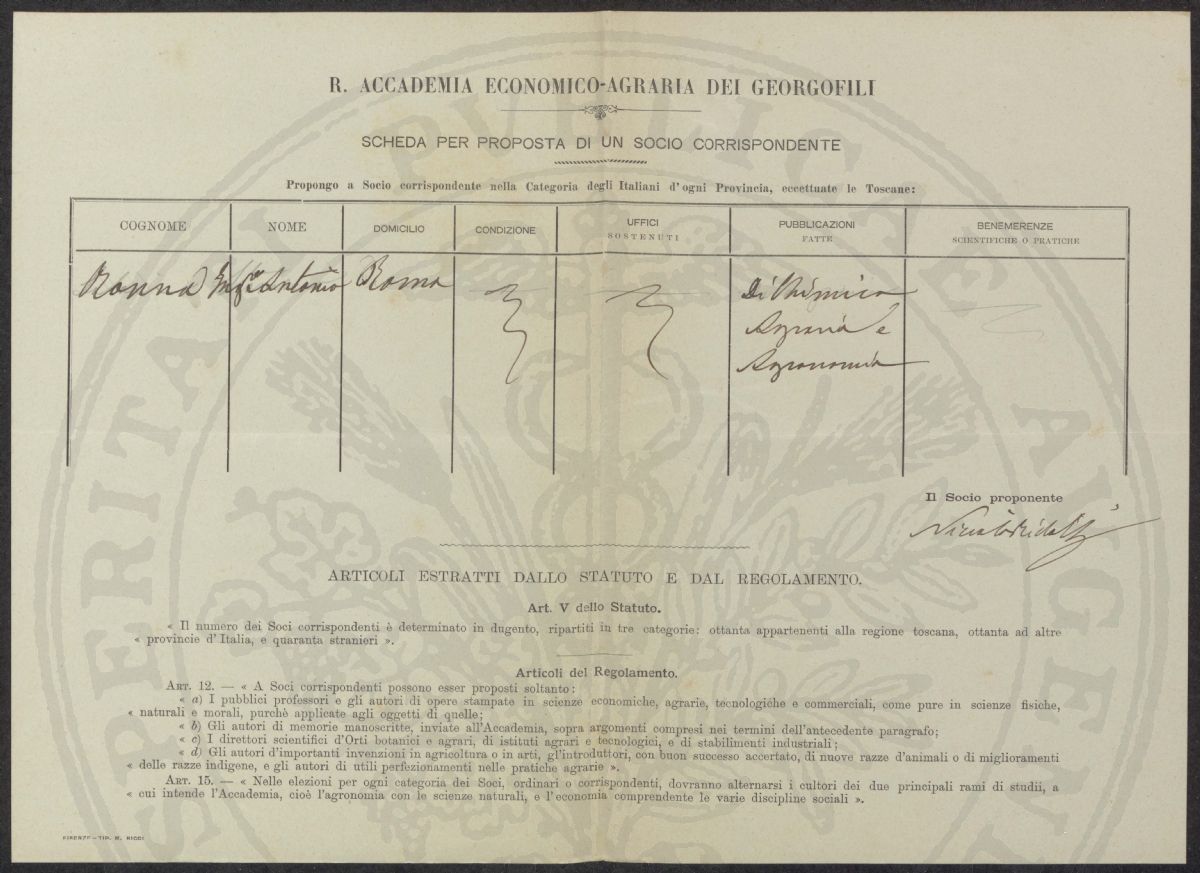 R. ACCADEMIA ECONOMICO-AGRARIA DEI GEORGOFILI
SCHEDA PER PROPOSTA DI UN SOCIO CORRISPONDENTE
Propongo a Socio corrispondente nella Categoria degli Italiani d'ogni Provincia, eccettuate le Toscane:
COGNOME
NOME
DOMICILIO
CONDIZIONE
UFFICI
SOSTENUTI
PUBBLICAZIONI
FATTE
BENEMERENZE
SCIENTIFICHE O PRATICHE
Ronna
Antonio
Roma
Di Chimica
Agraria e
Agronomia
Il Socio proponente
Ridolfi
ARTICOLI ESTRATTI DALLO STATUTO E DAL REGOLAMENTO.
Art. V dello Statuto.
« Il numero dei Soci corrispondenti è determinato in dugento, ripartiti in tre categorie: ottanta appartenenti alla regione toscana, ottanta ad altre
« provincie d'Italia, e quaranta stranieri ».
Articoli del Regolamento.
ART. 12. — « A Soci corrispondenti possono esser proposti soltanto:
« a) I pubblici professori e gli autori di opere stampate in scienze economiche, agrarie, tecnologiche e commerciali, come pure in scienze fisiche,
« naturali e morali, purchè applicate agli oggetti di quelle;
« b) Gli autori di memorie manoscritte, inviate all'Accademia, sopra argomenti compresi nei termini dell'antecedente paragrafo;
« c) I direttori scientifici d'Orti botanici e agrari, di istituti agrari e tecnologici, e di stabilimenti industriali;
« d) Gli autori d'importanti invenzioni in agricoltura o in arti, gl'introduttori, con buon successo accertato, di nuove razze d'animali o di miglioramenti
« delle razze indigene, e gli autori di utili perfezionamenti nelle pratiche agrarie ».
ART. 15. — « Nelle elezioni per ogni categoria dei Soci, ordinari o corrispondenti, dovranno alternarsi i cultori dei due principali rami di studii, a
« cui intende l'Accademia, cioè l'agronomia con le scienze naturali, e l'economia comprendente le varie discipline sociali ».
FIRENZE—TIP. M. RICCI
PROSPERITATI PUBLICAE AUGENDAE